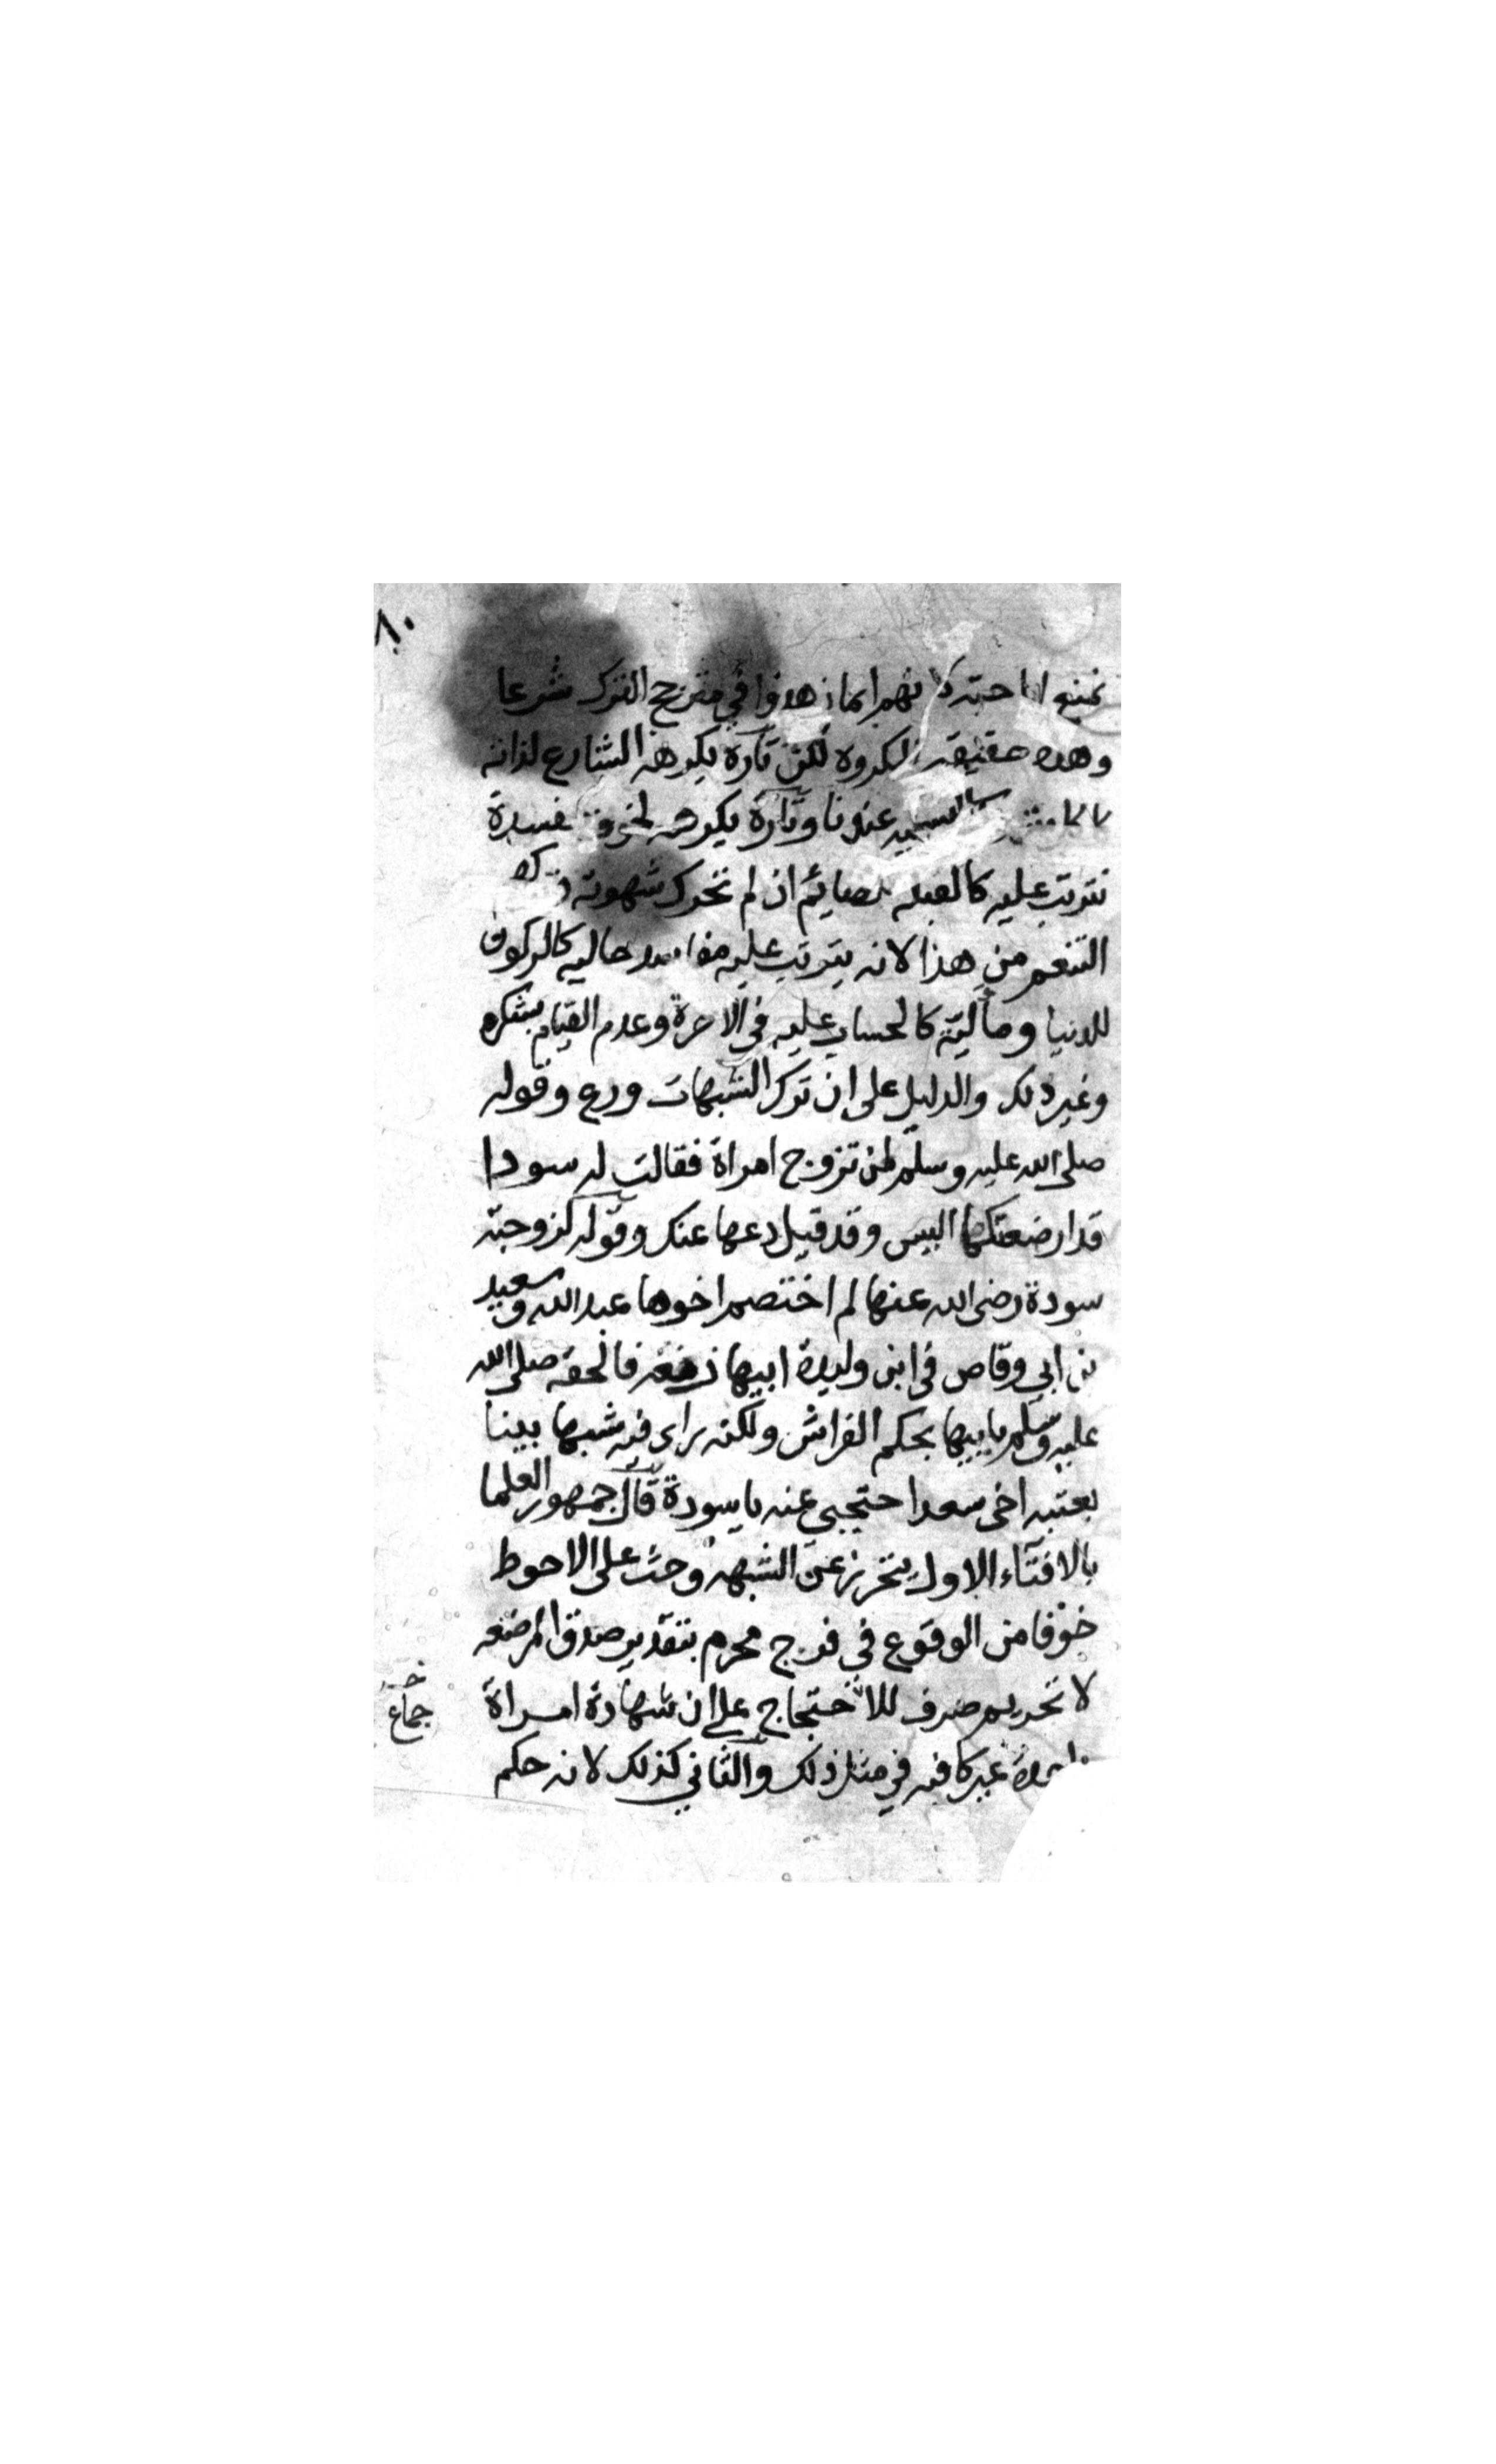 ٨٠
نمنع اباحته لانهم انما زهدوا في مترجح الترك شرعا
وهذه حقيقة المكروه لكن تارة يكرهه الشارع لذاته
عندنا وتارة يكرهه لخوف مفسدة
تترتب عليه كالقبلة لصايم ان لم تحرك شهوته
التنعم من هذا لانه يترتب عليه مفاسد حاليه كالركون
للدنيا ومآلية كالحساب عليه في الاخرة وعدم القيام بشكره
وغير ذلك والدليل على ان ترك الشبهات ورع وقوله
صلى الله عليه وسلم لمن تزوج امراة فقالت له سودا
قد ارضعتكما اليس وقد قيل دعها عنك وقوله لزوجته
سودة رضى الله عنها لم اختصم اخوها عبد الله وسعيد
بن ابي وقاص في ابن وليدة ابيها زمعه فالحقه صلى الله
عليه وسلم بابيها بحكم الفراش ولكنه راى فيه شبها بينا
بعتبه اخى سعد احتجبي عنه يا سودة قال جمهور العلما
بالافتآء الاول يتحرز عن الشبهه وحث على الاحوط
خوفا من الوقوع في فرج محرم بتقدير صدق المرضعه
لا تحريم صرف للاحتجاج على ان شهادة امراة
واحدة غير كافيه في مثل ذلك والثاني كذلك لانه حكم
جماع